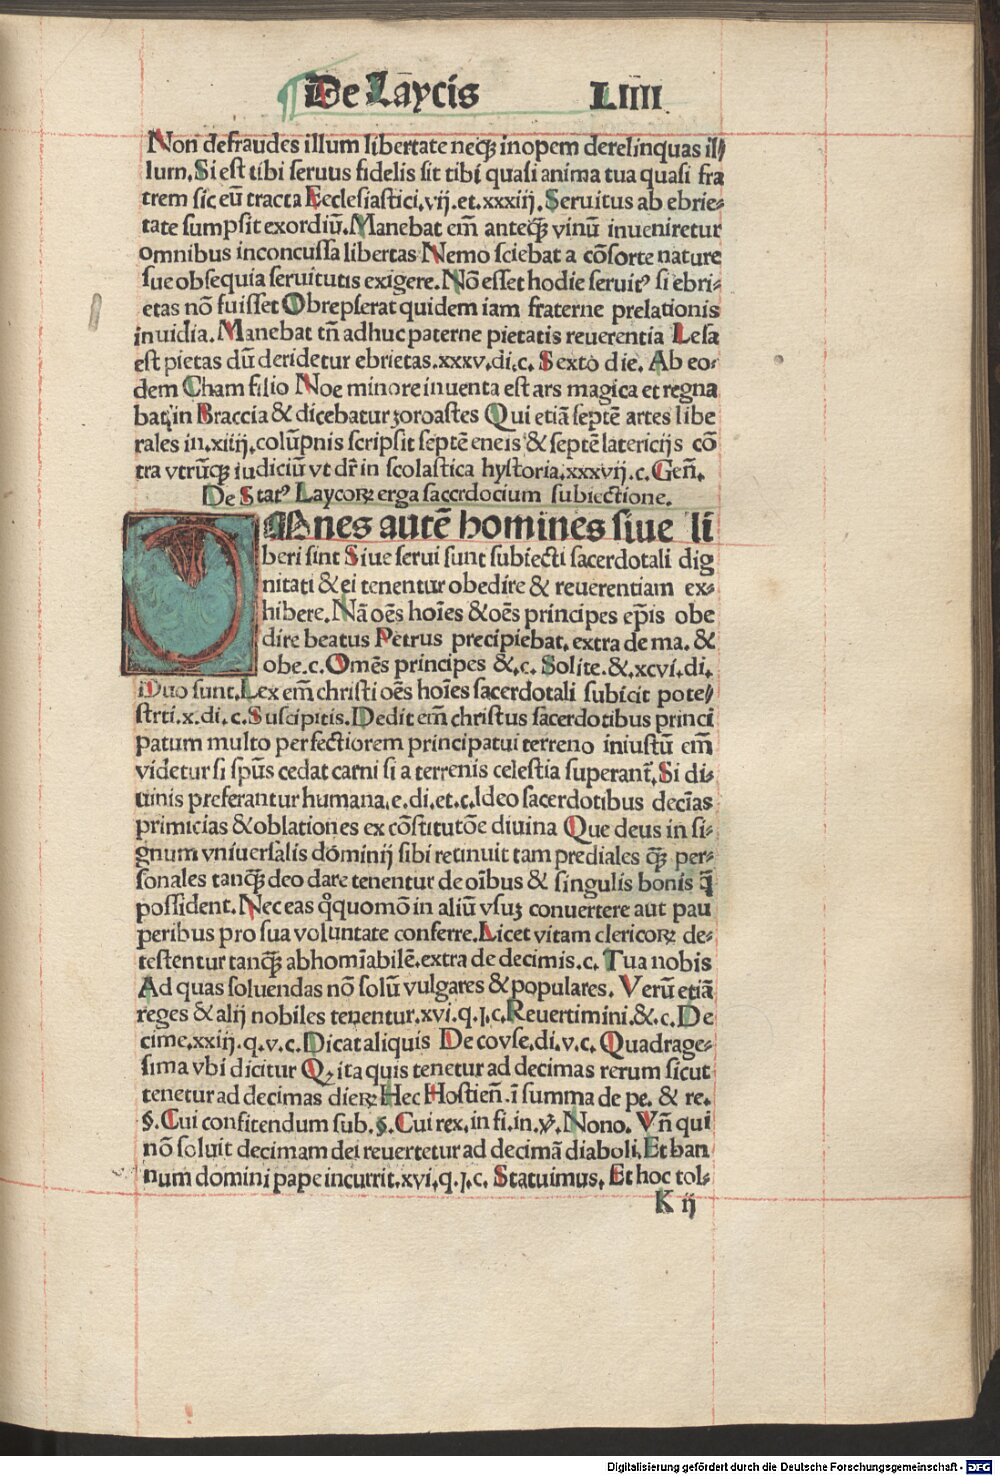 De Laycis LIIII
Non defraudes illum libertate necꝫ inopem derelinquas il⸗
lum. Si est tibi seruus fidelis sit tibi quasi anima tua quasi fra
trem sic eū tracta Ecclesiastici. vij. et. xxxiij. Seruitus ab ebrie⸗
tate sumpsit exordiū. Manebat em̄ anteqꝫ̄ vinū inueniretur
omnibus inconcussa libertas Nemo sciebat a cōsorte nature
sue obsequia seruitutis exigere. Nō esset hodie seruitꝰ si ebri⸗
etas nō fuisset Obrepserat quidem iam fraterne prelationis
inuidia. Manebat tn̄ adhuc paterne pietatis reuerentia Lesa
est pietas dū deridetur ebrietas. xxxv. di. c. Sexto die. Ab eo⸗
dem Cham filio Noe minore inuenta est ars magica et regna
bat in Braccia & dicebatur zoroastes Qui etiā septē artes libe
rales in. xiiij. colūpnis scripsit septē eneis & septē latericijs cō
tra vtrūqꝫ iudiciū vt dr̄ in scolastica hystoria. xxxvij. c. Gen̄.
De Statꝰ Laycoꝝ erga sacerdocium subiectione.
OMnes autē homines siue li
beri sint Siue serui sunt subiecti sacerdotali dig
nitati & ei tenentur obedire & reuerentiam ex⸗
hibere. Nā oēs hoīes & oēs principes ep̄is obe
dire beatus Petrus precipiebat. extra de ma. &
obe. c. Omēs principes &. c. Solite. &. xcvi. di.
Duo sunt. Lex em̄ christi oēs hoīes sacerdotali subicit pote⸗
strti. x. di. c. Suscipitis. Dedit em̄ christus sacerdotibus princi
patum multo perfectiorem principatui terreno iniustū em̄
videtur si spūs cedat carni si a terrenis celestia superant̄. Si di⸗
uinis preferantur humana. e. di. et. c. Ideo sacerdotibus decīas
primicias & oblationes ex cōstitutōe diuina Que deus in si⸗
gnum vniuersalis dominij sibi retinuit tam prediales qꝫ̄ per⸗
sonales tanqꝫ̄ deo dare tenentur de oībus & singulis bonis q̄
possident. Nec eas q̊quomō in aliū vsuꝫ conuertere aut pau
peribus pro sua voluntate conferre. Licet vitam clericoꝝ de⸗
testentur tanqꝫ̄ abhomīabilē. extra de decimis. c. Tua nobis
Ad quas soluendas nō solū vulgares & populares. Verū etiā
reges & alij nobiles tenentur. xvi. q. j. c. Reuertimini. &. c. De
cime. xxiij. q. v. c. Dicat aliquis De covse. di. v. c. Quadrage⸗
sima vbi dicitur Qꝫ ita quis tenetur ad decimas rerum sicut
tenetur ad decimas dieꝝ Hec Hostien̄. ī summa de pe. & re.
§. Cui confitendum sub. §. Cui rex. in fi. in. ꝟ. Nono. Vn̄ qui
nō soluit decimam dei reuertetur ad decimā diaboli. Et ban
num domini pape incurrit. xvi. q. j. c. Statuimus. Et hoc tol⸗
K ij
Digitalisierung gefördert durch die Deutsche Forschungsgemeinschaft - DFG